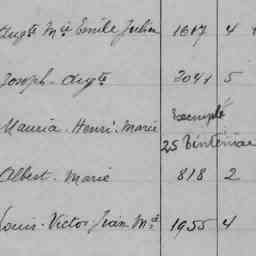 Augte Mie Emile Julien 1617 4
Joseph - Augte 2041 5
Exempté
Mauria - Henri - Marie
25 Tinténiac
Albert - Marie 818 2
Louis - Victor Jean Mie 1955 4